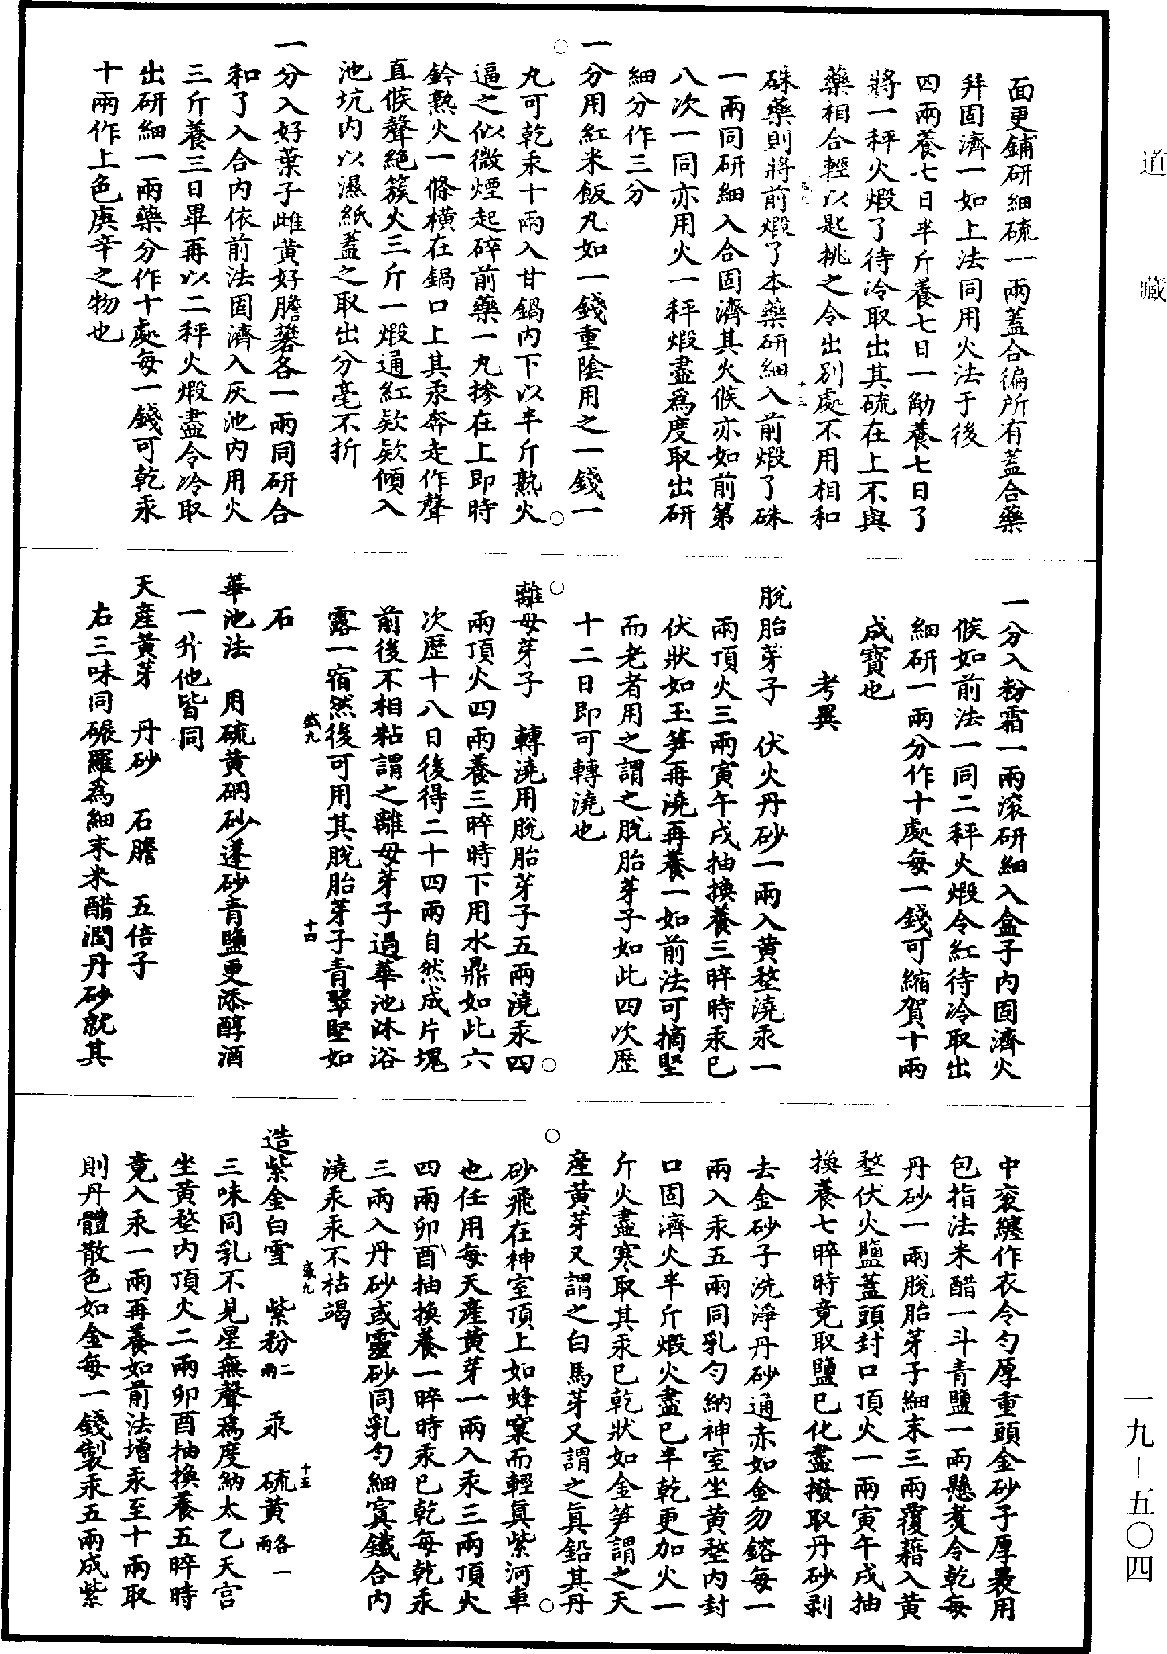 道藏
面更鋪研細硫一兩蓋合徧所有蓋合藥
拜固濟一如上法同用火法于後
四兩養七日半斤養七日一觔養七日了
將一秤火煅了待冷取出其硫在上不與
藥相合輕以匙挑之令出別處不用相和
十三
硃藥則將前煅了本藥研細入前煅了硃
一兩同研細入合固濟其火候亦如前第
八次一同亦用火一秤煅盡為度取出研
細分作三分
一分用紅米飯丸如一錢重陰用之一錢一
丸可乾汞十兩入甘鍋內下以半斤熟火
逼之似微煙起碎前藥一丸摻在上即時
鈐熟火一條橫在鍋口上其汞奔走作聲
直候聲絕簇火三斤一煅通紅欵欵傾入
池坑內以濕紙蓋之取出分毫不折
一分入好葉子雌黃好膽礬各一兩同研合
和了入合內依前法固濟入灰池內用火
三斤養三日畢再以二秤火煅盡令冷取
出研細一兩藥分作十處每一錢可乾汞
十兩作上色庚辛之物也
一分入粉霜一兩滚研細入盒子內固濟火
候如前法一同二秤火煅令紅待冷取出
細研一兩分作十處每一錢可縮賀十兩
成寶也
考異
脫胎芽子　伏火丹砂一兩入黃㙜澆汞一
兩頂火三兩寅午戌抽換養三晬時汞已
伏狀如玉笋再澆再養一如前法可摘堅
而老者用之謂之脫胎芽子如此四次歷
十二日即可轉澆也
離母芽子　轉澆用脫胎芽子五兩澆汞四
兩頂火四兩養三晬時下用水鼎如此六
次歷十八日後得二十四兩自然成片塊
前後不相粘謂之離母芽子過華池沐浴
露一宿然後可用其脫胎芽子青翠堅如
十四
石
華池法　用硫黃硇砂蓬砂青鹽更添醇酒
一升他皆同
天產黃芽　丹砂　石膽　五倍子
右三味同碾羅為細末米醋潤丹砂就其
中衮纏作衣令勻厚重頭金砂子厚裹用
包指法米醋一斗青鹽一兩懸煑令乾每
丹砂一兩脫胎芽子細末三兩覆藉入黃
㙜伏火鹽蓋頭封口頂火一兩寅午戌抽
換養七晬時竟取鹽已化盡撥取丹砂剥
去金砂子洗淨丹砂通赤如金勿鎔每一
兩入汞五兩同乳勻納神室坐黃㙜內封
口固濟火半斤煅火盡已半乾更加火一
斤火盡寒取其汞已乾狀如金笋謂之天
產黃芽又謂之白馬芽又謂之真鉛其丹
砂飛在神室頂上如蜂窠而輕真紫河車
也任用每天產黃芽一兩入汞三兩頂火
四兩卯酉抽換養一晬時汞已乾每乾汞
三兩入丹砂或靈砂同乳勻細寘鐵合內
澆汞汞不枯竭
十五
造紫金白雪　紫粉二兩　汞　硫黃各一兩
三味同乳不見星無聲為度納太乙天宫
坐黃㙜內頂火二兩卯酉抽換養五晬時
竟入汞一兩再養如前法增汞至十兩取
則丹體散色如金每一錢製汞五兩成紫
一九-五〇四